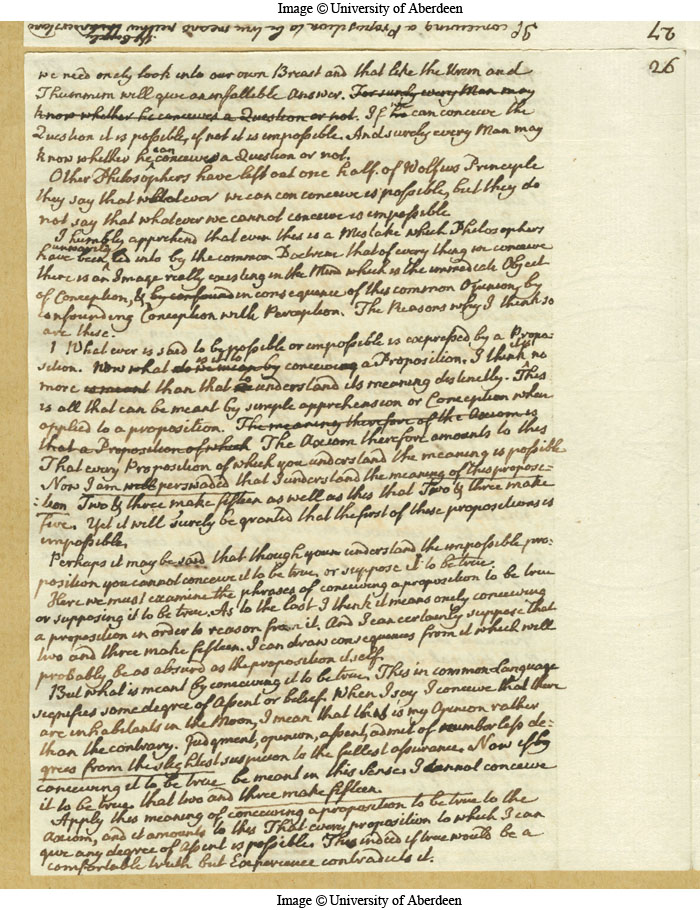 Image © University of Aberdeen
27
26
we need onely look into our own Breast and that like the Urim and
Thummim will give an infallible Answer. For surely every Man may
know whether he conceives a Question or not. If he can conceive the
Question it is possible, if not it is impossible. And surely every Man may
know whether he can conceive a Question or not.
Other Philosophers have left out one half of Wolfius Principle
they say that whatever we can conceive is possible, but they do
not say that whatever we cannot conceive is impossible
I humbly apprehend that even this is a Mistake which Philosophers
have been unwarily led into by the common Doctrine that of every thing we conceive
there is an Image really existing in the Mind which is the immediate Object
of Conception, & by confound in consequence of this common Opinion, by
confounding Conception with Perception. The Reasons why I think so
are these.
1 Whatever is said to be possible or impossible is expressed by a Propo-
sition. Now what is it to conceive a Proposition. I think it is no
more than that understand its meaning distinctly. This
is all that can be meant by simple apprehension or Conception when
applied to a proposition. The meaning therefore of the Axiom is
that a Proposition of which The Axiom therefore amounts to this
That every Proposition of which you understand the meaning is possible
Now I am well perswaded that I understand the meaning of this proposi-
:tion Two & three make fifteen as well as this that Two & three make
Five. Yet it will surely be granted that the first of these propositions is
impossible.
Perhaps it may be said that though you understand the impossible pro-
position you cannot conceive it to be true, or suppose it to be true.
Here we must examine the phrases of conceiving a proposition to be true
or supposing it to be true. As to the last I think it means onely conceiving
a proposition in order to reason from it. And I can certainly suppose that
two and three make fifteen. I can draw consequences from it which will
probably be as absurd as the proposition itself.
But what is meant by conceiving it to be true. This in common Language
signifies some degree of Assent or belief. When I say I conceive that there
are inhabitants in the Moon, I mean that this is my Opinion rather
than the contrary. Judgment, opinion, assent, admit of numberless de-
grees from the slightest suspicion to the fullest assurance. Now if by
conceiving it to be true be meant in this Sense. I cannot conceive
it to be true that two and three make fifteen.
Apply this meaning of conceiving a proposition to be true to the
Axiom, and it amounts to this That every proposition to which I can
give any degree of Assent is possible. This indeed if true would be a
comfortable truth but Experience contradicts it.
Image © University of Aberdeen